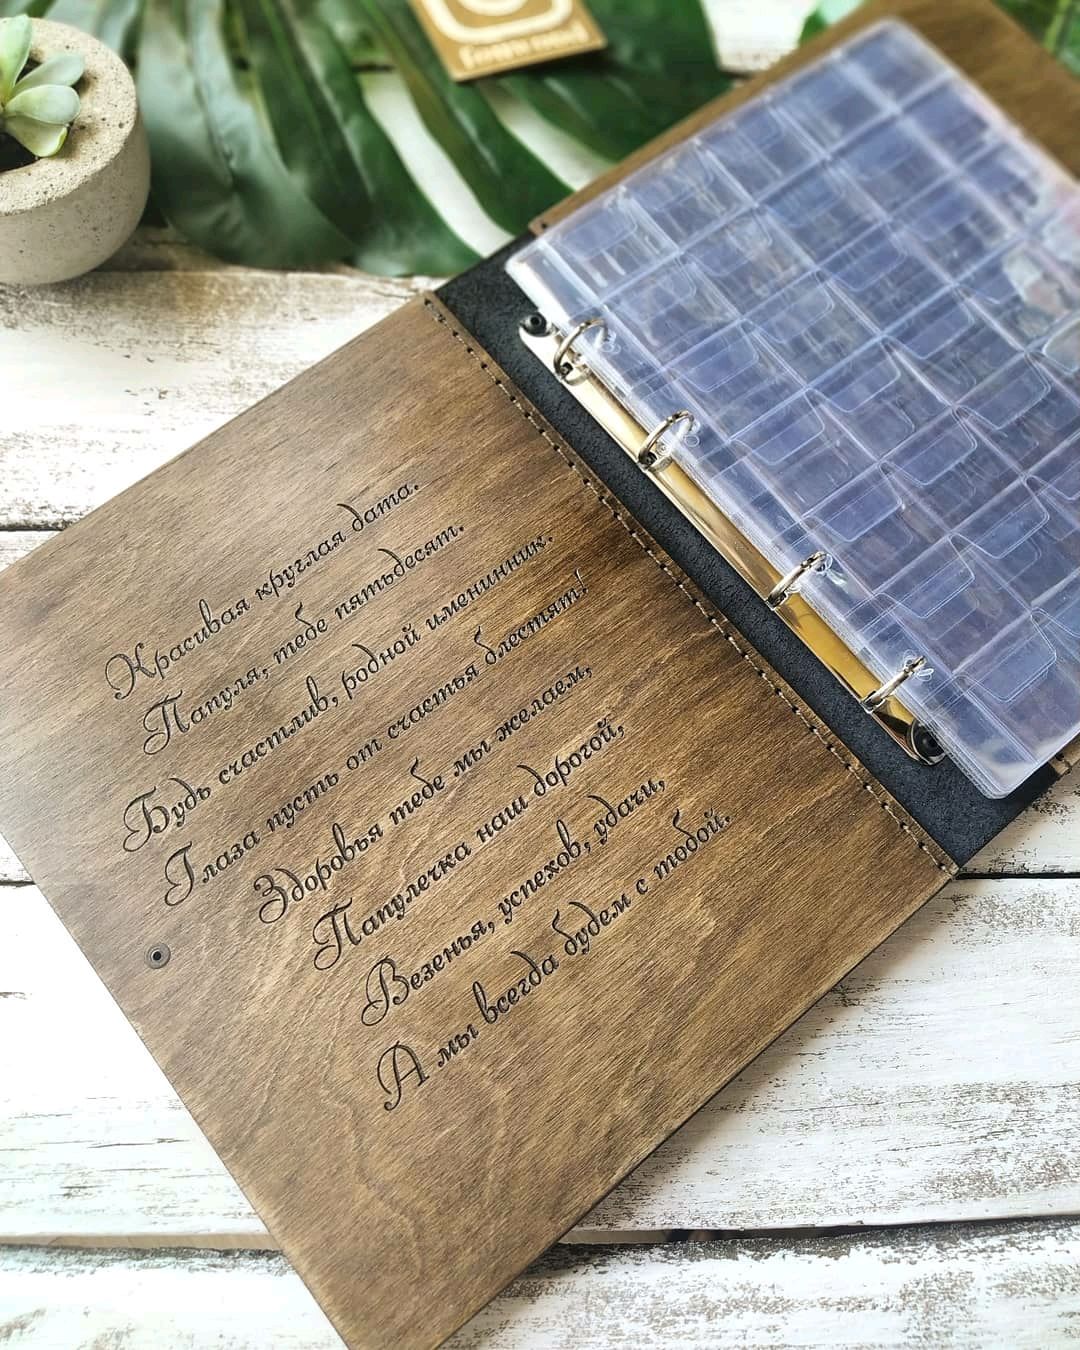 Красивая круглая дата.
Папуля, тебе пятьдесят.
Будь счастлив, родной именинник.
Глаза пусть от счастья блестят!
Здоровья тебе мы желаем,
Папулечка наш дорогой,
Везенья, успехов, удачи,
А мы всегда будем с тобой.